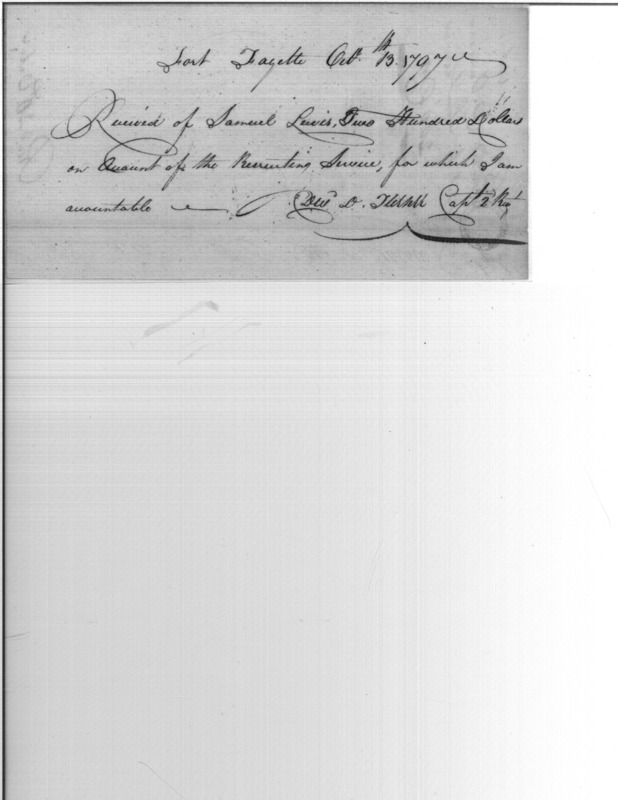 Fort Fayette Octr. 13th. 1797
Received of Samuel Lewis, Two Hundred Dollars
on Account of the Recruiting Service, for which I am
accountable Capt 2 Regt